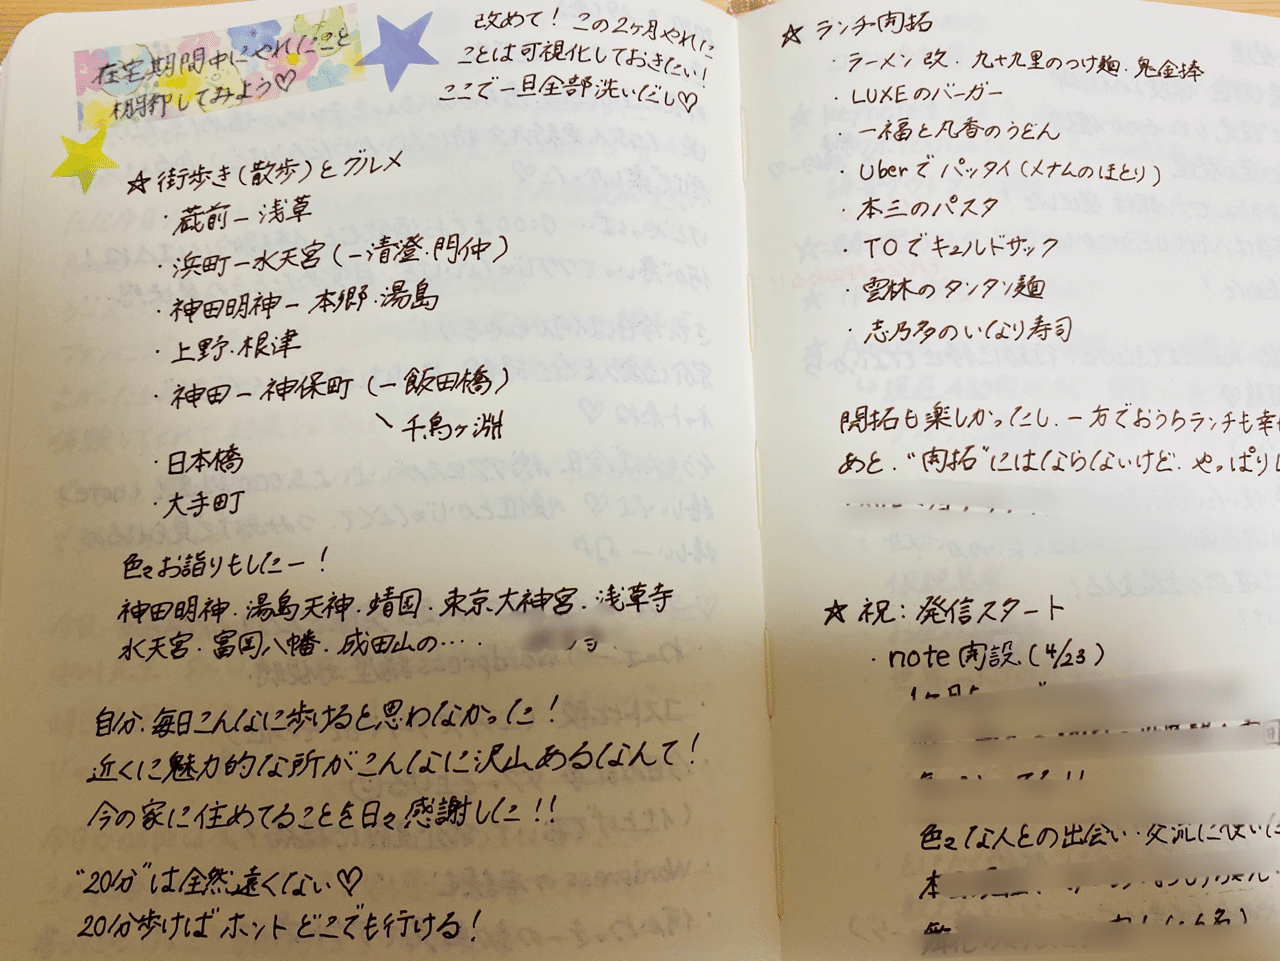 在宅期間中にやれたこと
棚卸してみよう♡
改めて！この2ヶ月やれた
ことは可視化しておきたい！
ここで一旦全部洗いだし♡
☆街歩き(散歩)とグルメ
・蔵前ー浅草
・浜町ー水天宮(ー清澄・門仲)
・神田明神ー本郷・湯島
・上野・根津
・神田ー神保町(ー飯田橋)
＼千鳥ヶ淵
・日本橋
・大手町
色々お詣りもしたー！
神田明神・湯島天神・靖国・東京大神宮・浅草寺
水天宮・富岡八幡・成田山の…
自分、毎日こんなに歩けると思わなかった！
近くに魅力的な所がこんなに沢山あるなんて！
今の家に住めてることを日々感謝した!!
"20分"は全然遠くない♡
20分歩けばホントどこでも行ける！
☆ランチ開拓
・ラーメン改・九十九里のつけ麺・鬼金棒
・LUXEのバーガー
・一福と丸香のうどん
・Uberでパッタイ(メナムのほとり)
・本三のパスタ
・TOでキュルドサック
・雲林のタンタン麺
・志乃多のいなり寿司
開拓も楽しかったし、一方でおうちランチも幸
あと、"開拓"にはならないけど、やっぱりし
☆祝：発信スタート
・note開設(4/23)
色々な人との出会い・交流に
本